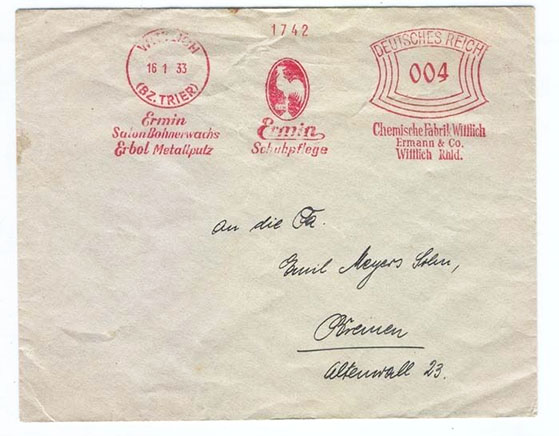 1742
WITTLICH
16 1 33
(BZ. TRIER)
Ermin
Salon Bohnerwachs
Erbol Metallputz
Ermin
Schuhpflege
DEUTSCHES REICH
004
Chemische Fabrik Wittlich
Ermann & Co.
Wittlich Rhld.
An die Fa.
Emil Meyers Sohn,
Bremen
Altenwall 23.